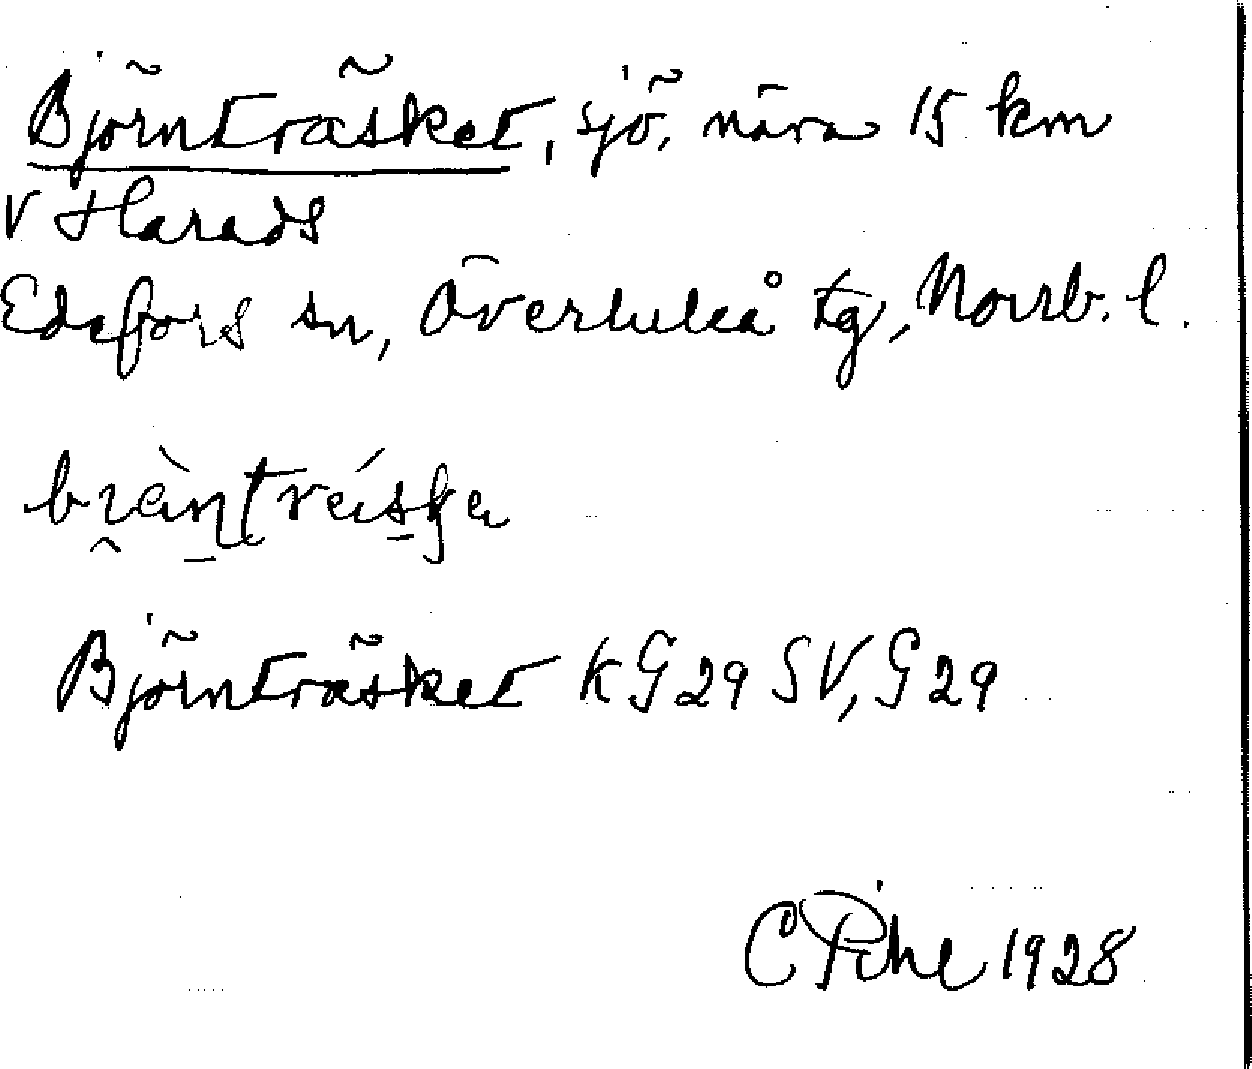 Björnträsket, sjö, nära 15 km
V Harads
Edefors sn, Överluleå tg, Norrb. l.
Björnträsket KG29 SV, G29
C Pihl 1928